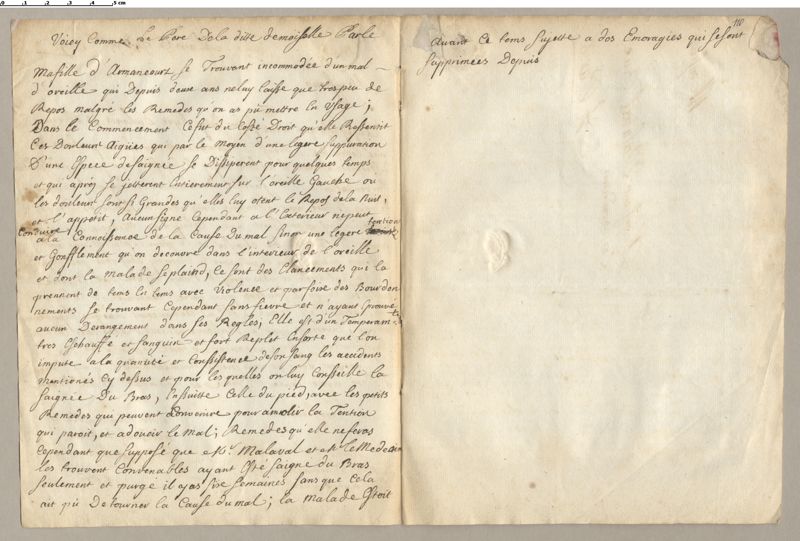 Voicy Comme Le Pere De la ditte demoiselle Parle
Mafille d'Armancourt se Trouvant incommodée d'un mal
d'oreille qui Depuis deux ans neluy laisse que trespeu de
Repos malgré les Remedes qu'on as pû mettre en Usage ;
Dans le Commencement Cefut du Costé Droit qu'elle Ressentit
Ces Douleurs Aigües qui par le moyen d'une legere suppuration
D'une Espece desaignée se Dissiperent pour quelques temps
et qui aprés se jetterent Entierement sur l'oreille Gauche ou
les douleurs sont si Grandes qu'elles luy otent le Repos dela Nuit,
et l'appetit, Aucun signe Cependant a l'Exterieur nepeut
Conduire a la Connoissance de la Cause Du mal sinon une legere tention
et Gonfflement qu'on decouvre dans l'interieur de l'oreille
et dont la malade seplaind, Ce sont des Elancements que la
prennent de tems En tems avec Violence et par fois des Bourdon
nements se trouvant Cependant sans fievre et n'ayant Eprouvé
aucun Derangement dans ses Regles, Elle est d'un Temperam-t
tres Echauffé et sanguin et fort Replet Ensorte que l'on
impute a la quantité et Consistence deson sang les accidents
mentionés Cy dessus et pour lesquelles on luy Conseille la
saignée Du Bras, Ensuitte Celle du pied, avec les petits
Remedes qui peuvent Convenire pour amolir la Tention
qui paroit, et adoucir le mal ; Remedes qu'elle neferas
Cependant que supposé que Mr. Malaval et Mr le Medecin
les trouvent Convenables ayant Esté saigné du Bras
seulement et purgé il yas six semaines sans que Cela
ait pû Detourner la Cause du mal ; la malade Estoit
110
Avant Ce tems sujette a des Emoragies qui se sont
supprimées Depuis
0 1 2 3 4 5 cm